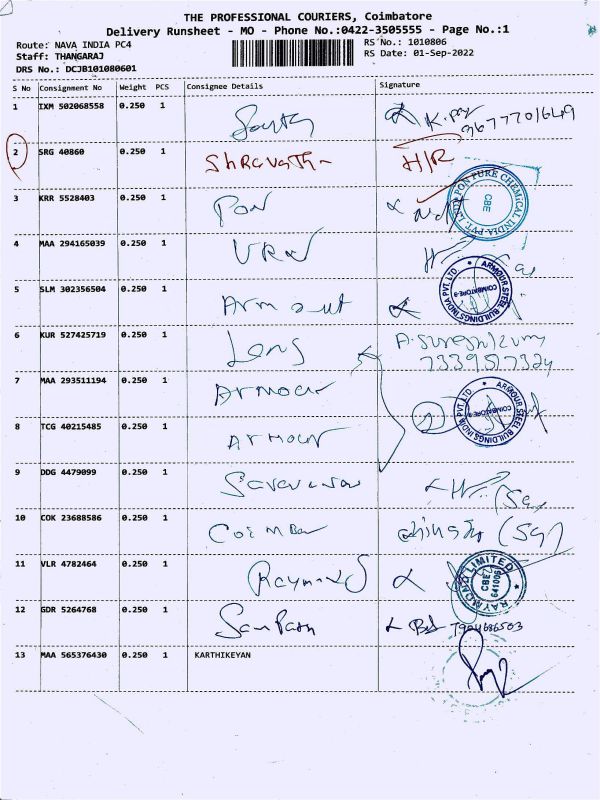 THE PROFESSIONAL COURIERS, Coimbatore
Delivery Runsheet - MO - Phone No.:0422-3505555 - Page No.:1
Route: NAVA INDIA PC4 RS No.: 1010806
Staff: THANGARAJ RS Date: 01-Sep-2022
DRS No.: DCJB101080601
S No Consignment No Weight PCS Consignee Details Signature
1 IXM 502068558 0.250 1
2 SRG 40860 0.250 1 H/R
3 KRR 5528403 0.250 1 Pon
PON PURE CHEMICAL INDIA PVT. LTD
CBE
4 MAA 294165039 0.250 1
5 SLM 302356504 0.250 1
ARMOUR STEEL BUILDINGS INDIA PVT. LTD
COIMBATORE-9
6 KUR 527425719 0.250 1 Lens
7 MAA 293511194 0.250 1 Armour
ARMOUR STEEL BUILDINGS INDIA PVT. LTD
COIMBATORE-9
8 TCG 40215485 0.250 1 Armour
9 DDG 4479099 0.250 1
10 COK 23688586 0.250 1
11 VLR 4782464 0.250 1 Raymond
RAYMOND LIMITED
CBE
641006
12 GDR 5264768 0.250 1 Sampath
13 MAA 565376430 0.250 1 KARTHIKEYAN